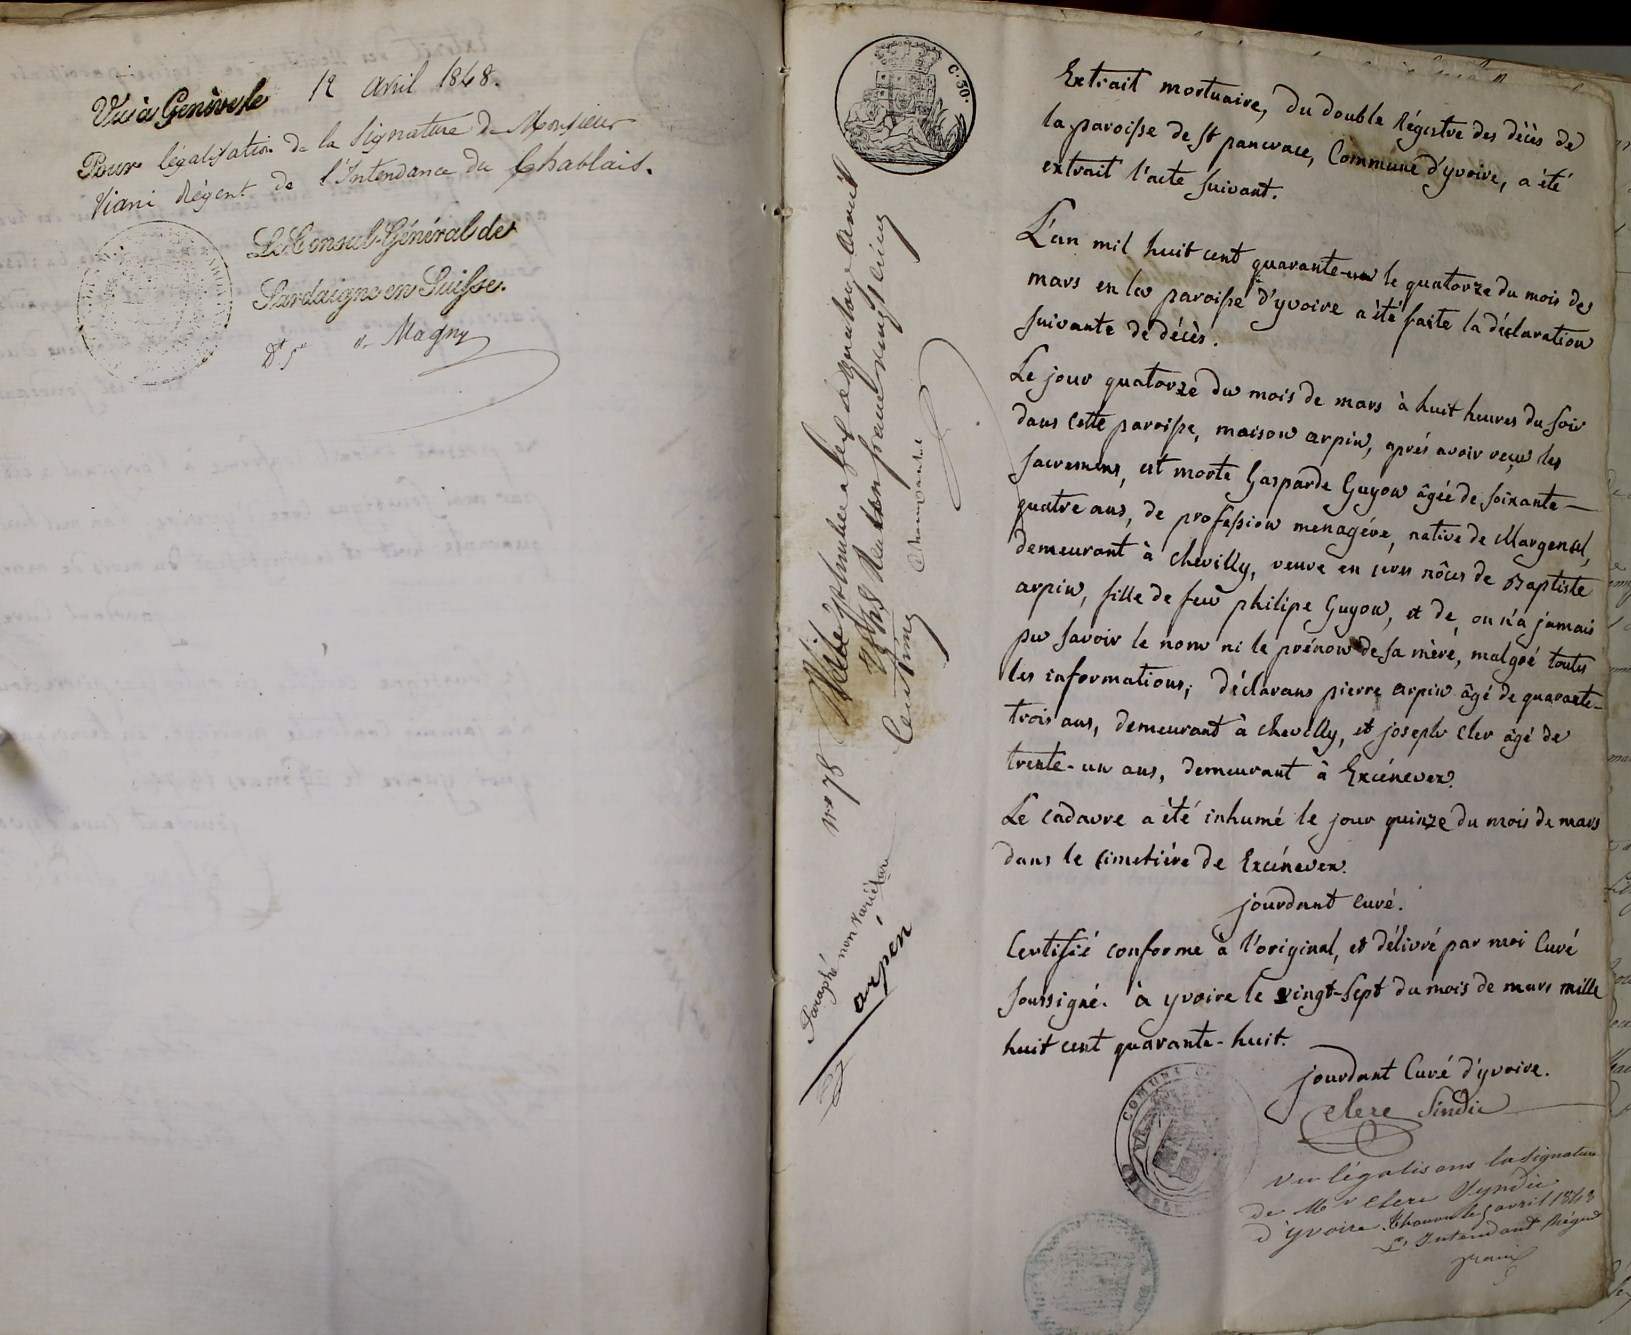 Vu à Genève le 12 avril 1848.
Pour légalisation de la signature de Monsieur
Viani Régent de l'Intendance du Chablais.
Le Consul Général de
Sardaigne en Suisse.
Magny
C. 30.
Extrait mortuaire, du double Régistre des décès de
la paroisse de st pancrace, Commune d'yvoire, a été
extrait l'acte suivant.
L'an mil huit cent quarante-un le quatorze du mois de
mars en la paroisse d'yvoire a été faite la déclaration
suivante de décès.
Le jour quatorze du mois de mars à huit heures du soir
dans cette paroisse, maison arpin, après avoir reçu les
sacremens, est morte Gasparde Guyon âgée de soixante-
quatre ans, de profession menagére, native de Margencel,
demeurant à chevilly, veuve en 1eres nôces de Baptiste
arpin, fille de feu philipe Guyon, et de, on n'a jamais
pu savoir le nom ni le prénom de sa mère, malgré toutes
les informations; déclarans pierre arpin âgé de quarante-
trois ans, demeurant à chevilly, et joseph cler âgé de
trente-un ans, demeurant à Excénevex.
Le cadavre a été inhumé le jour quinze du mois de mars
dans le cimetière de Excénevex.
jourdant curé.
Certifié conforme à l'original, et délivré par moi Curé
soussigné. à yvoire le vingt-sept du mois de mars mille
huit cent quarante-huit.
jourdant Curé d'yvoire.
clerc sindic
COMUNE
Vu légalisons la signature
de Mr clerc Syndic
d'yvoire. Thonon le 5 avril 1848
L'Intendant Régent
Viani
No 78 Visé pr timbre à le quatorze avril
1848 Reçu franc vingt cinq
Centimes
Paraphé non variétur
arpin